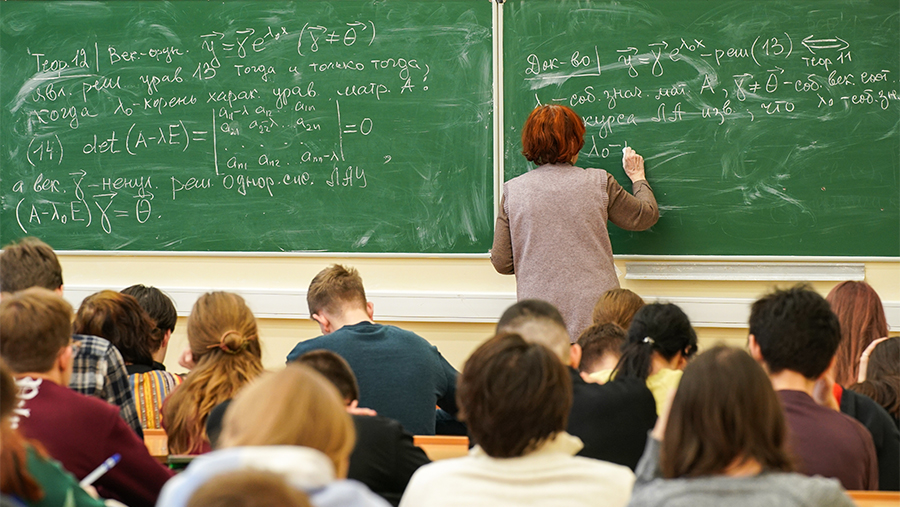 Теор.12| Век.-функ. y⃗=γ⃗e^{λ₀x} (γ⃗≠θ⃗)
явл. реш. урав. 13 тогда и только тогда,
когда λ₀-корень харак. урав. матр. А:
(14) det(A-λE)= | a₁₁-λ a₁₂ ... a₁ₙ
a₂₁ a₂₂-λ ... a₂ₙ
. . . . .
aₙ₁ aₙ₂ aₙₙ-λ | =0
а век. γ⃗-ненул. реш. однор. сис. ЛАУ,
(A-λ₀E)γ⃗=θ⃗.
Док-во| y⃗=γ⃗e^{λ₀x}-реш(13) ⟺
теор 11
соб. знач. мат А, γ⃗≠θ⃗-соб. век. соот.
курса ЛА изв., что λ₀-соб. зн
λ₀-